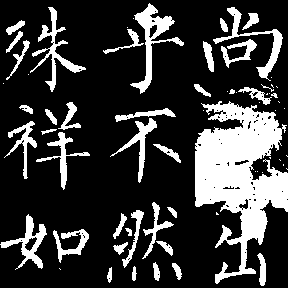 尚出
乎不然
殊祥如